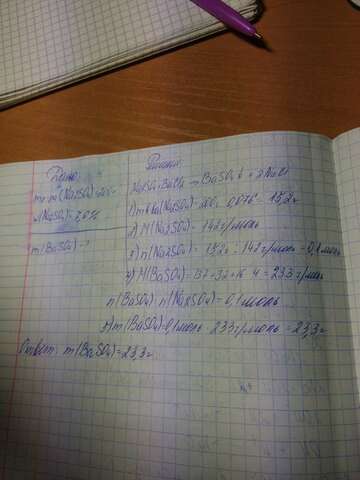 Дано:
m р-ра (Na2SO4)=200г
ω(Na2SO4)=7,0%
m(BaSO4)-?
Решение:
Na2SO4+BaCl2 → BaSO4↓ + 2NaCl
2) M(Na2SO4)=142г/моль
3) n(Na2SO4)= : 142г/моль=0,1моль
4) M(BaSO4)=137+32+16·4=233г/моль
n(BaSO4)=n(Na2SO4)=0,1моль
5) m(BaSO4)=0,1моль·233г/моль=23,3г
Ответ: m(BaSO4)=23,3г